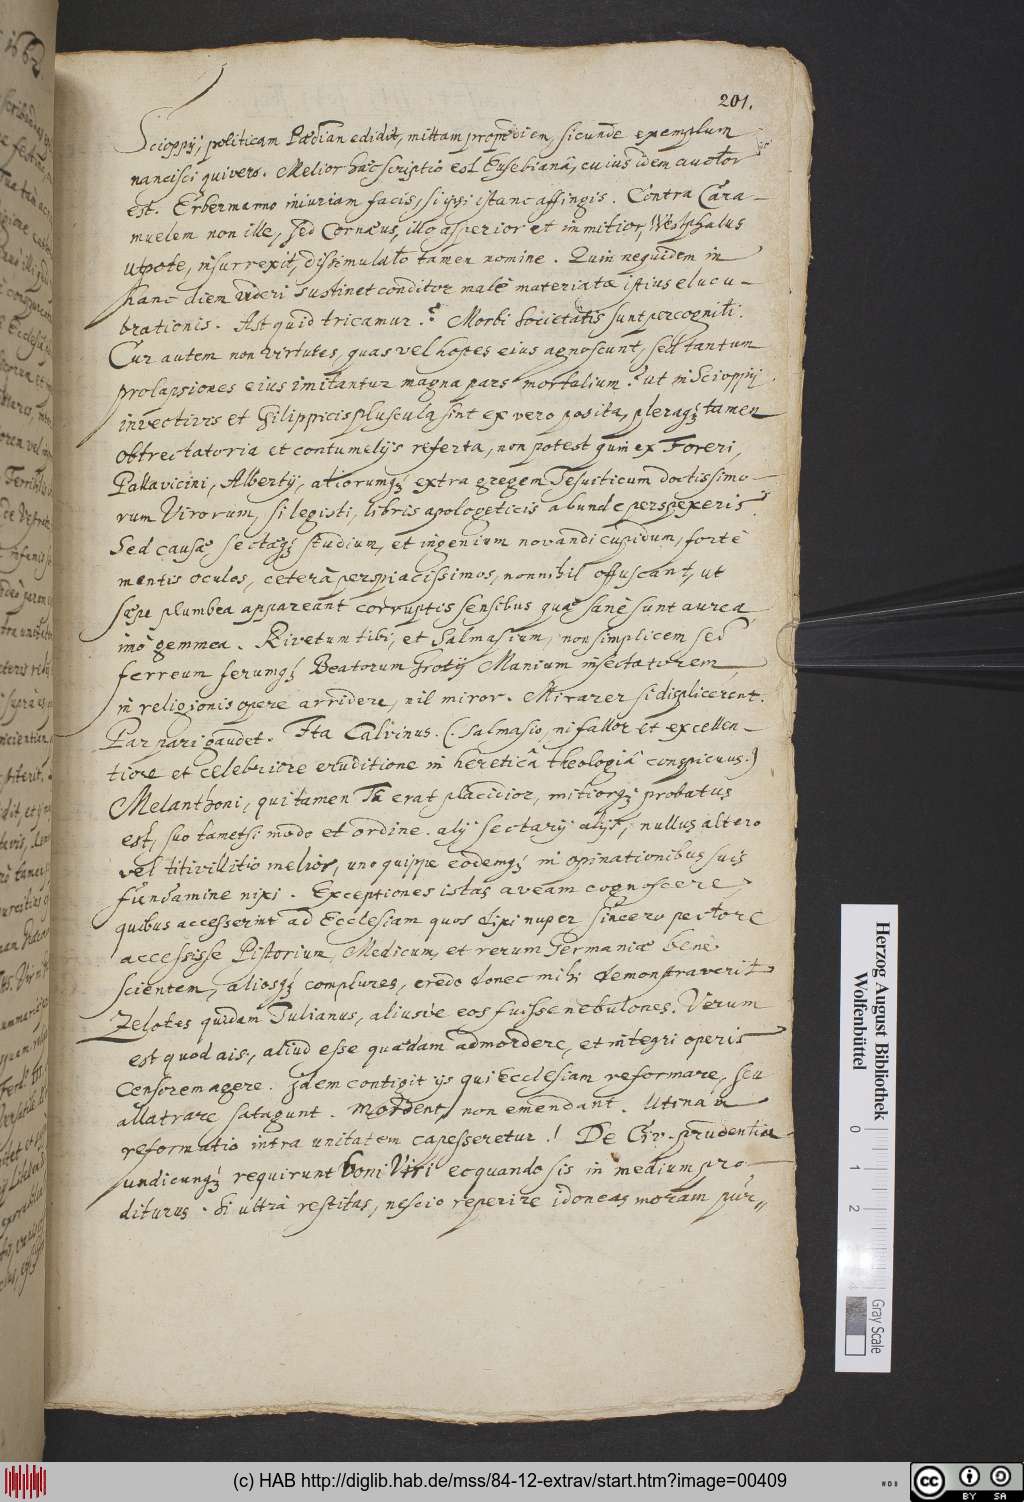 201.
Scioppij, politicam Pædian edidit, mittam propediem, sicunde exemplum
nancisci quivero. Melior hac scriptio est Eusebianâ, cuius idem auctor
est. Erbermanno iniuriam facis, si ipsi istanc affingis. Contra Cara-
muelem non ille, sed Cornæus, illo asperior et immitior, Westphalus
utpote, insurrexit, dissimulato tamen nomine. Quin nequidem in
hanc diem videri sustinet conditor malè materiatæ istius elucu-
brationis. Ast quid tricamur? Morbi Societatis sunt percogniti.
Cur autem non virtutes, quas vel hostes eius agnoscunt, sed tantum
prolapsiones eius imitantur magna pars mortalium? ut in Scioppij
invectivis et Philippicis pluscula sint ex vero posita, pleraq; tamen
obtrectatoria et contumelijs referta, non potest quin ex Foreri,
Pallavicini, Albertij, aliorumq; extra gregem Jesuiticum doctissimo-
rum Virorum, si legisti, libris apologeticis abunde perspexeris.
Sed causæ, sectæq; studium, et ingenium novandi cupidum, fortè
mentis oculos, ceterà perspicacissimos, nonnihil offuscant, ut
sæpe plumbea appareant corruptis sensibus quæ sanè sunt aurea,
imò gemmea. Rivetum tibi, et Salmasium, non simplicem sed
ferreum ferumq; Beatorum Grotij Manium insectatorem,
in religionis opere arridere, nil miror. Mirarer si displicerent.
Par pari gaudet. Ita Calvinus. (: Salmasio, ni fallor et excellen-
tiore et celebriore eruditione in hereticâ theologiâ conspicuus:)
Melanthoni, qui tamen Tu erat placidior, mitiorq; probatus
est, suo tametsi modo et ordine. alij sectarij alijs, nullus altero
vel titivillitio melior, uno quippe eodemq; in opinationibus suis
fundamine nixi. Exceptiones istas aveam cognoscere,
quibus accesserint ad Ecclesiam quos dixi nuper sincero pectore
accessisse Pistorium, Medicum, et rerum Germaniæ benè
scientem, aliosq; complures, credo donec mihi demonstraverit
Zelotes quidam Julianus, aliusve eos fuisse nebulones. Verum
est quod ais, aliud esse quædam admordere, et integri operis
Censorem agere. Idem contigit ijs qui Ecclesiam reformare, seu
allatrare satagunt. Mordent, non emendant. Utinam
reformatio intra unitatem capesseretur! De Civ. prudentia
undicunq; requirunt boni Viri ecquando sis in medium pro-
diturus. Si ultrà restitas, nescio reperire idoneas moram pur-
Herzog August Bibliothek
Wolfenbüttel
0 1 2
Gray Scale
(c) HAB http://diglib.hab.de/mss/84-12-extrav/start.htm?image=00409
cc BY SA